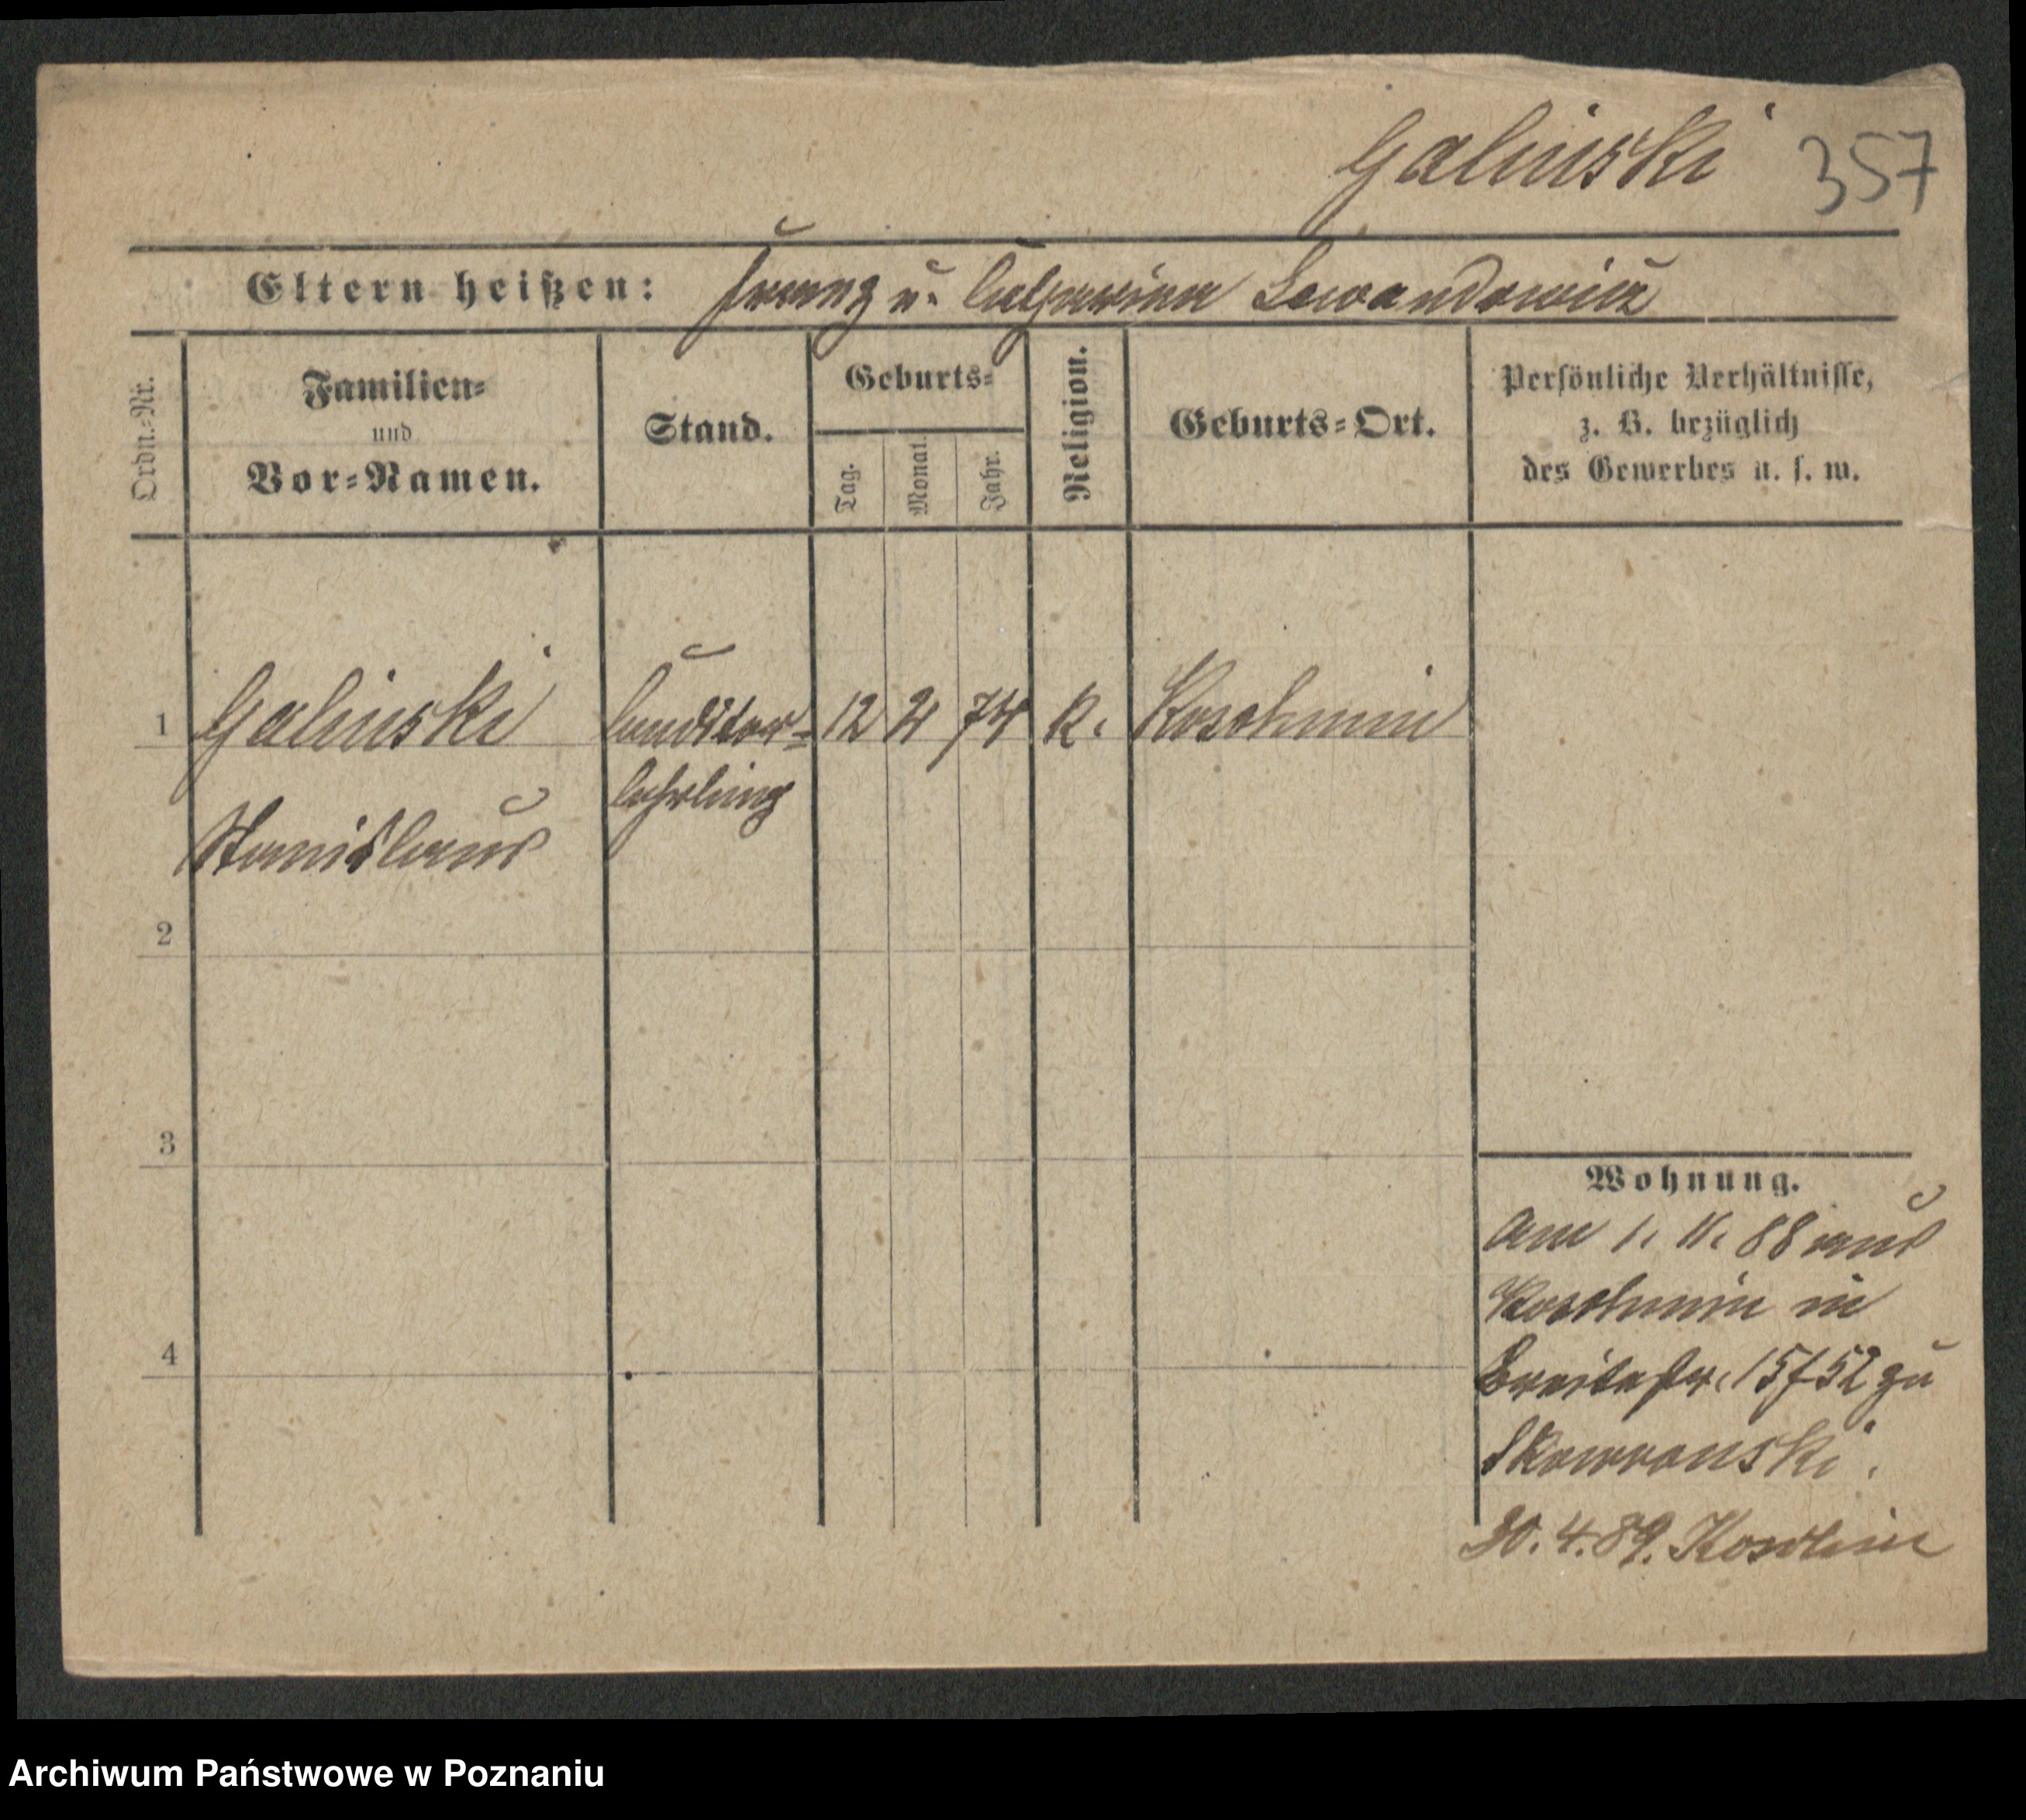 Galinski 357
Eltern heißen: Franz u. Catharina Lewandowicz
Ordn.-Nr.
Familien-
und
Vor-Namen.
Stand.
Geburts-
Tag.
Monat.
Jahr.
Religion.
Geburts-Ort.
Persönliche Verhältnisse,
z. B. bezüglich
des Gewerbes u. s. w.
1 Galinski Conditor- 12 2 74 k. Koschmin
lehrling
Stanislaus
2
3
4
Wohnung.
Am 1. 11. 88 aus
Koschmin in
Breitestr. 15/52 zu
Skowronski.
30. 4. 89. Koschmin
Archiwum Państwowe w Poznaniu